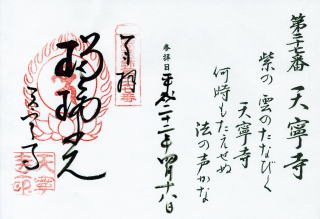 第三十七番 天寧寺
紫の雲のたなびく
天寧寺
何時もたえせぬ
法の声かな
参拝日 平成二十二年四月十八日
奉拝
天寧寺